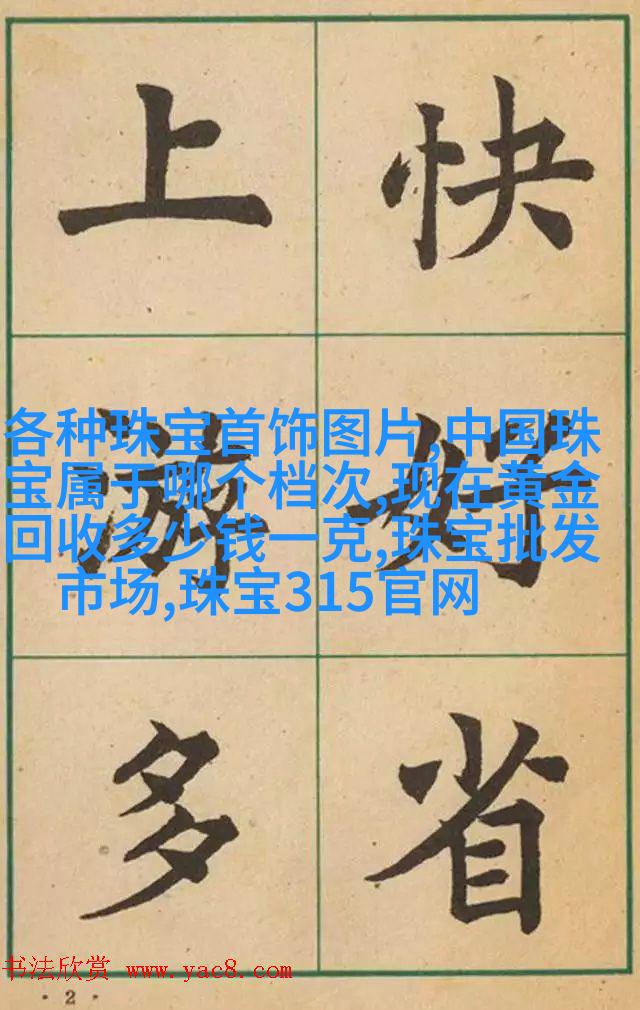 上游多
快好省
各种珠宝首饰图片,中国珠
宝属于哪个档次,现在黄金
回收多少钱一克,珠宝批发
市场,珠宝315官网
书法欣赏 www.yac8.com
· 2 ·